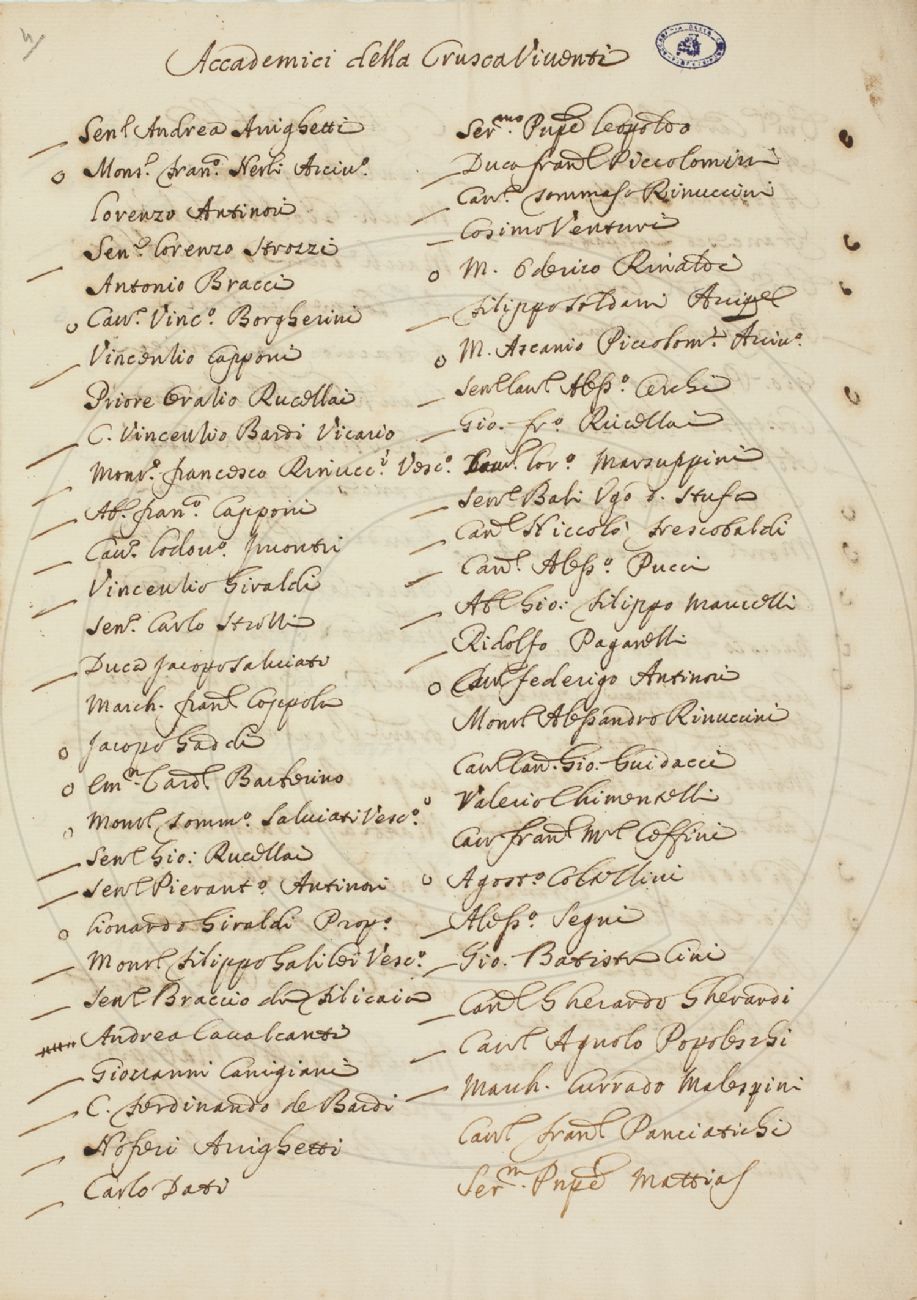 Accademici della Crusca Viventi
Sen.r Andrea Arrighetti
Mons.r Fran.o Nerli Arciv.o
Lorenzo Antinori
Sen.r Lorenzo Strozzi
Antonio Bracci
Cav.r Vinc.o Borgherini
Vincentio Capponi
Priore Oratio Rucellai
C. Vincentio Bardi Vicario
Mons.r Francesco Rinucc.i Vesc.o
Ab. Fran.o Capponi
Cav.r Lodov.o
Vincentio Giraldi
Sen.r Carlo Strozzi
Duca Jacopo Salviati
March. Fran.o Coppola
Jacopo Gaddi
Em.mo Card.l Barberino
Mons.r Tomm.o Salviati Vesc.o
Sen.r Gio: Rucellai
Sen.r Pierant.o Antinori
Lionardo Giraldi Prop.o
Mons.r Filippo Galilei Vesc.o
Sen.r Braccio da Filicaia
Andrea Cavalcanti
Giovanni Canigiani
C. Ferdinando de Bardi
Noferi Arrighetti
Carlo Dati
Ser.mo Pnpe Leopoldo
Duca Fran.o Piccolomini
Cav.r Tommaso Rinuccini
Cosimo Venturi
M. Oderico Rinaldi
Filippo Soldani
M. Ascanio Piccolom.i Arciv.o
Sen.r Cav.r Aless.o Cerchi
Gio. Fr.o Rucellai
Cav.r Lor.o Marsuppini
Sen.r Bali Ugo d. Stufa
Cav.r Niccolò Frescobaldi
Cav.r Aless.o Pucci
Ab. Gio: Filippo Marucelli
Ridolfo Paganelli
Cav.r Federigo Antinori
Mons.r Alessandro Rinuccini
Cav.r Can. Gio. Guidacci
Valerio Chimentelli
Cav.r Fran.o M.a Ceffini
Agost.o Coltellini
Aless.o Segni
Gio. Batista Cini
Cav.r Gherardo Gherardi
Cav.r Agnolo Popoleschi
March. Currado Malespini
Cav.r Fran.o Panciatichi
Ser.mo Pnpe Mattias